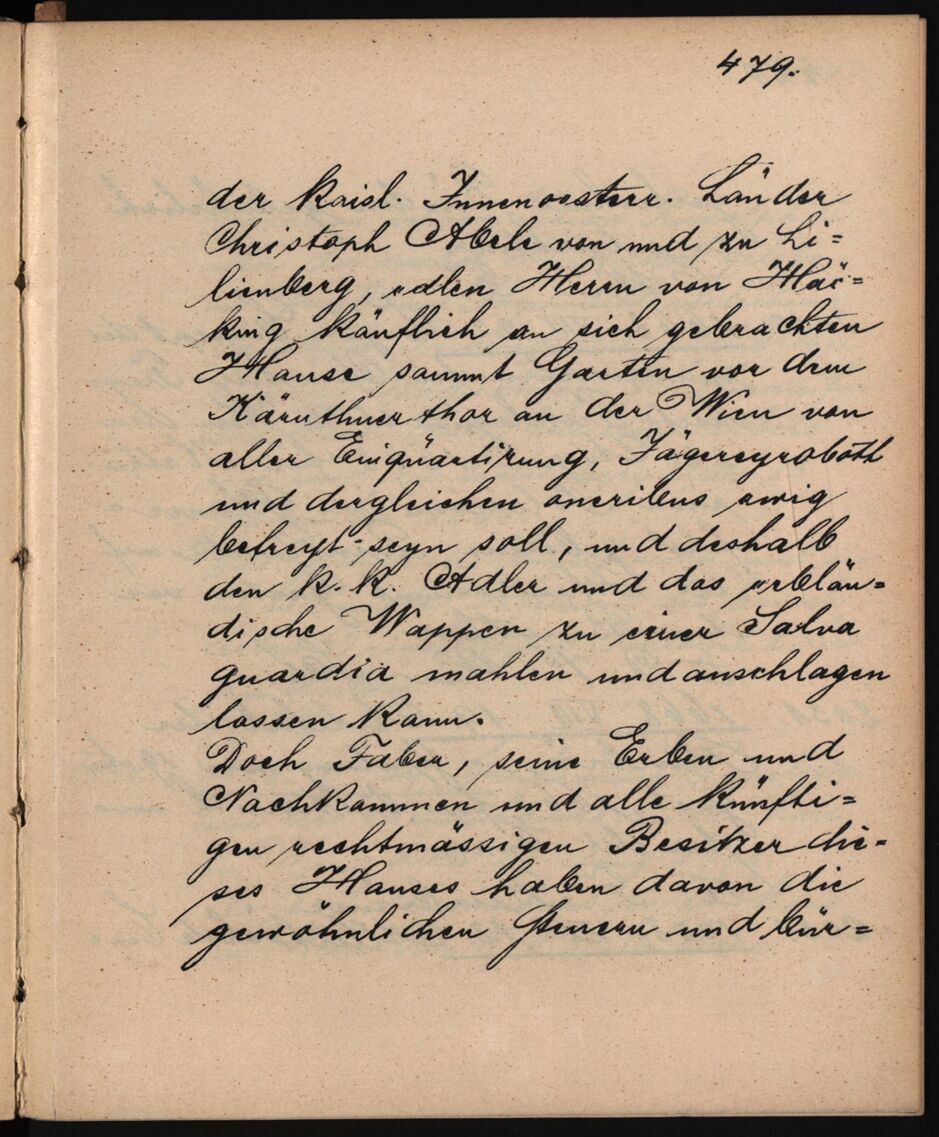 479.
der kaisl. Innenoesterr. Länder
Christoph Abele von und zu Li=
lienberg, edlen Herrn von Hac=
king käuflich an sich gebrachten
Hause sammt Garten vor dem
Kärnthnerthor an der Wien von
aller Einquartirung, Jägereyrobott
und dergleichen oneribus ewig
befreyt seyn soll, und deshalb
den k. k. Adler und das erblän=
dische Wappen zu einer Salva
guardia mahlen und anschlagen
lassen kann.
Doch Faber, seine Erben und
Nachkommen und alle künfti=
gen rechtmässigen Besitzer die=
ses Hauses haben davon die
gewöhnlichen Steuern und bür=